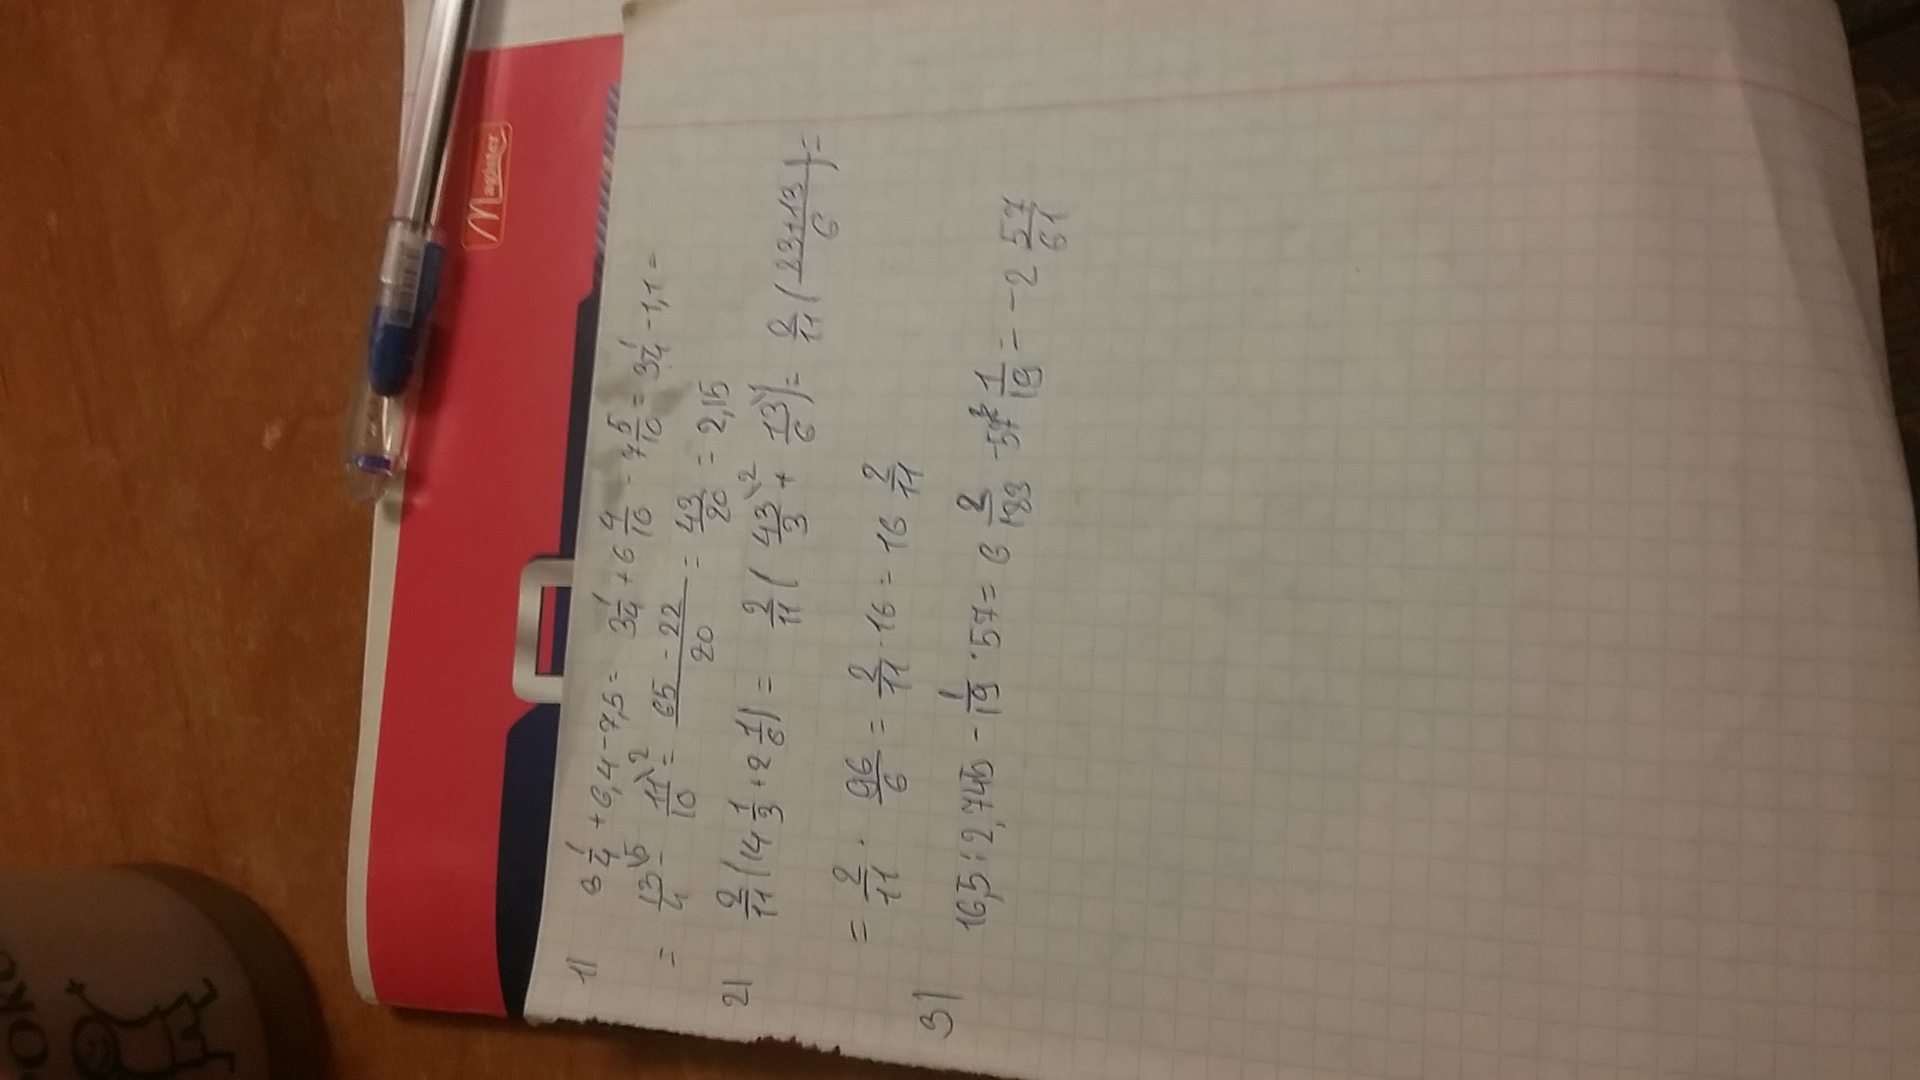 1) 3 1/4 + 6,4 - 7,5 = 3 1/4 + 6 4/10 - 7 5/10 = 3 1/4 - 1,1 =
= 13/4 \5 - 11/10 \2 = 65 - 22/20 = 43/20 = 2,15
2) 2/11 (14 1/3 + 2 1/6) = 2/11 (43/3 \2 + 13/6 \1) = 2/11 (83+13/6) =
= 2/11 · 96/6 = 2/11 · 16 = 16 2/11
3) 16,5 : 2,745 - 1/19 · 57 = 6 2/183 - 57 1/19 = -2 57/61
Magister